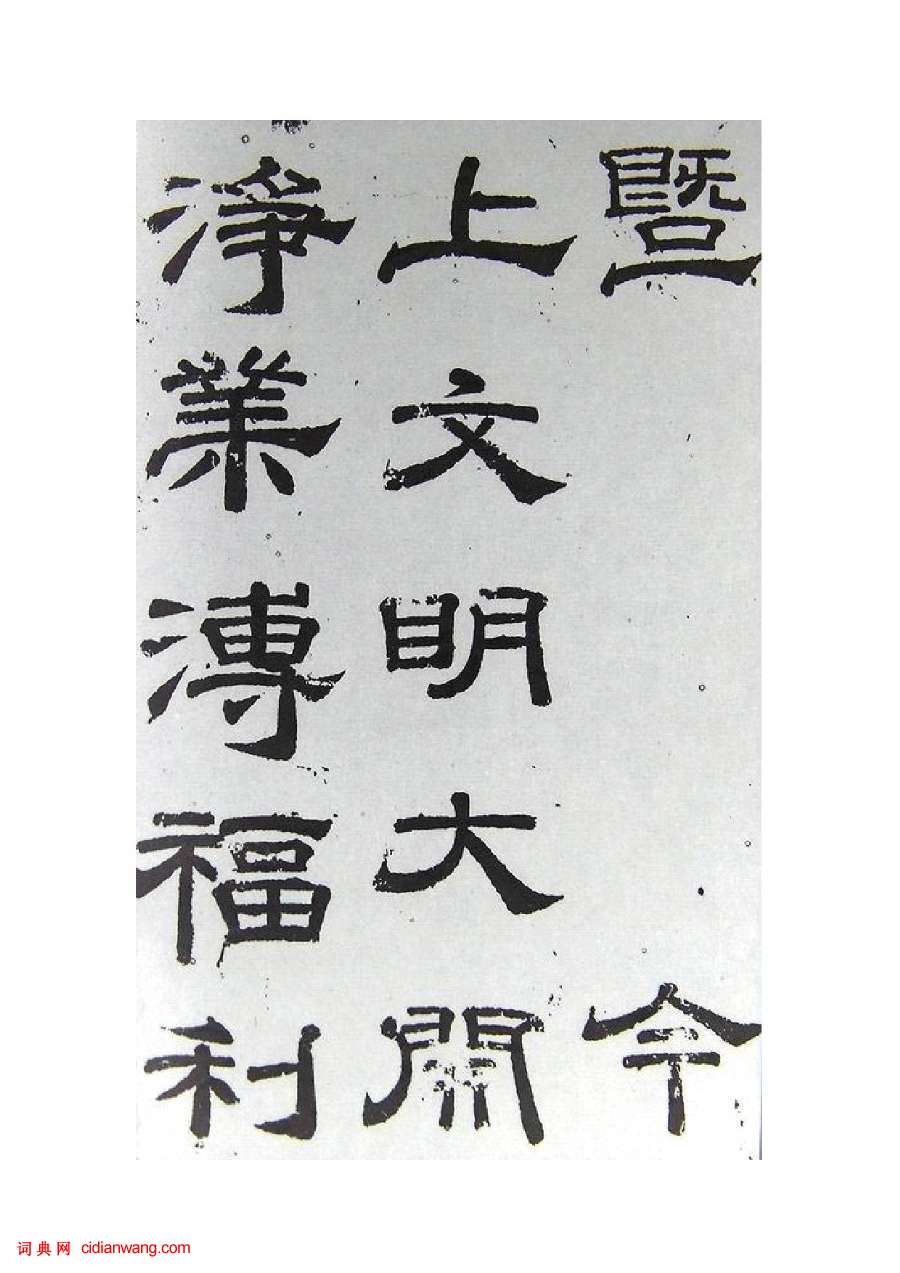 暨今
上文明大開
淨業溥福利
词典网 cidianwang.com